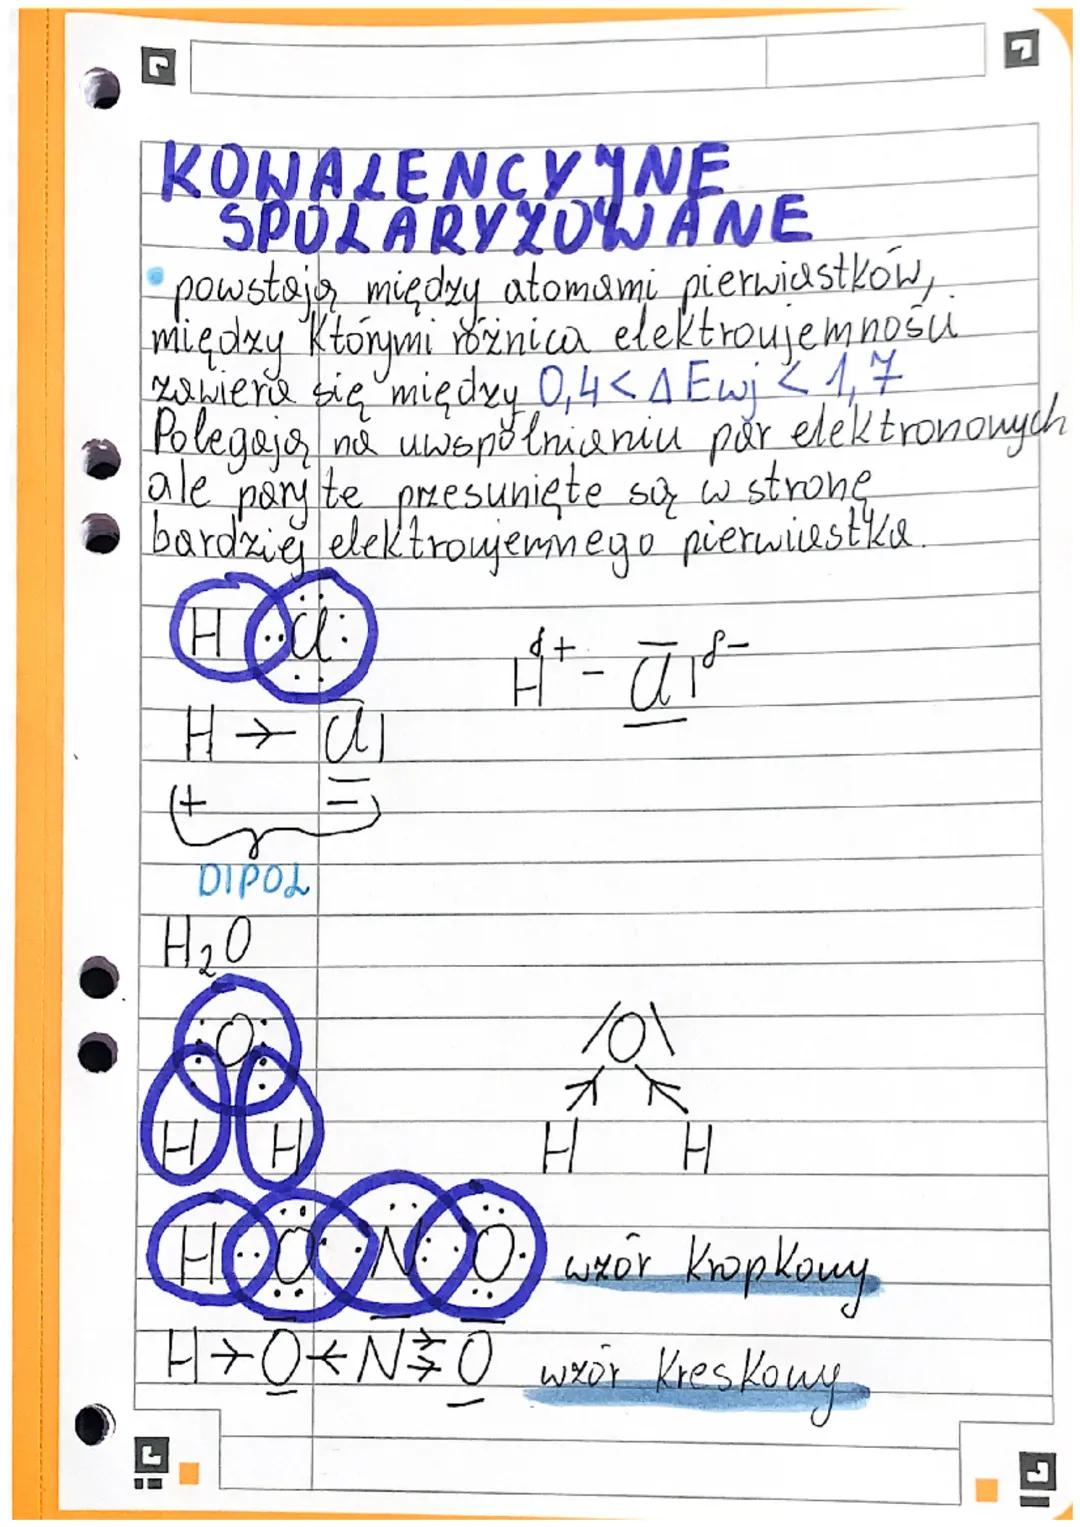 KOWALENCYJNE
SPOLARYZOWANE
• powstają między atomami pierwiastków,
między którymi różnica elektroujemności
zawiera się między 0,4 < Δ Ewj < 1,7
Polegają na uwspólnianiu par elektronowych
ale pary te przesunięte są w stronę
bardziej elektroujemnego pierwiastka.
H Cl
H δ+ - Cl δ-
H → Cl
+ -
DIPOL
H₂O
O
H H
O
H H
H O N O wzór kropkowy
H → O ← N ⇉ O wzór kreskowy